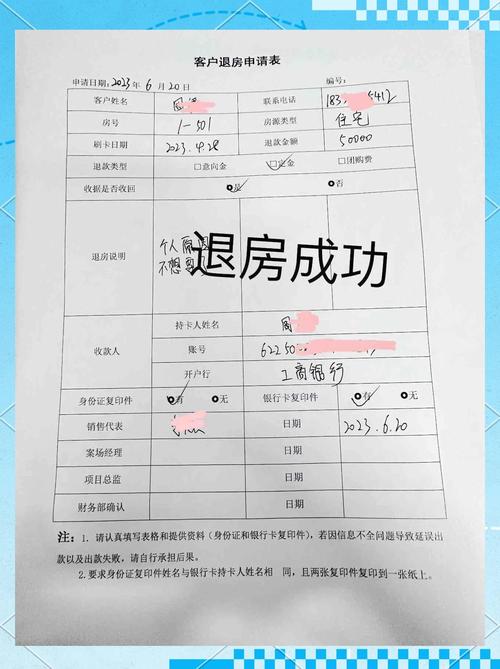 客户退房申请表
申请日期：2023年 6 月 20日 编号：
客户姓名 周 联系电话 183 5412
房号 1-501 房源类型 住宅
刷卡日期 2023.4.28 退款金额 50000
退款类型 □意向金 □定金 □团购费
收据是否收回 是 否
退房说明 个人原因
不想要
退房成功
收款人 持卡人姓名 周
账号 62250
开户行 工商银行
身份证复印件 有 无 银行卡复印件 有 无
销售代表 日期 2023.6.20
案场经理 日期
项目总监 日期
财务部确认 日期
注：1. 请认真填写表格和提供资料（身份证和银行卡复印件），若因信息不全问题导致延误出
款以及出款失败，请自行承担后果。
2.要求身份证复印件姓名与银行卡持卡人姓名相 同，且两张复印件复印到一张纸上。